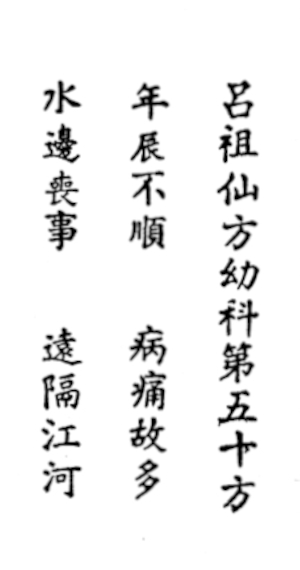 呂祖仙方幼科第五十方
年辰不順 病痛故多
水邊喪事 遠隔江河